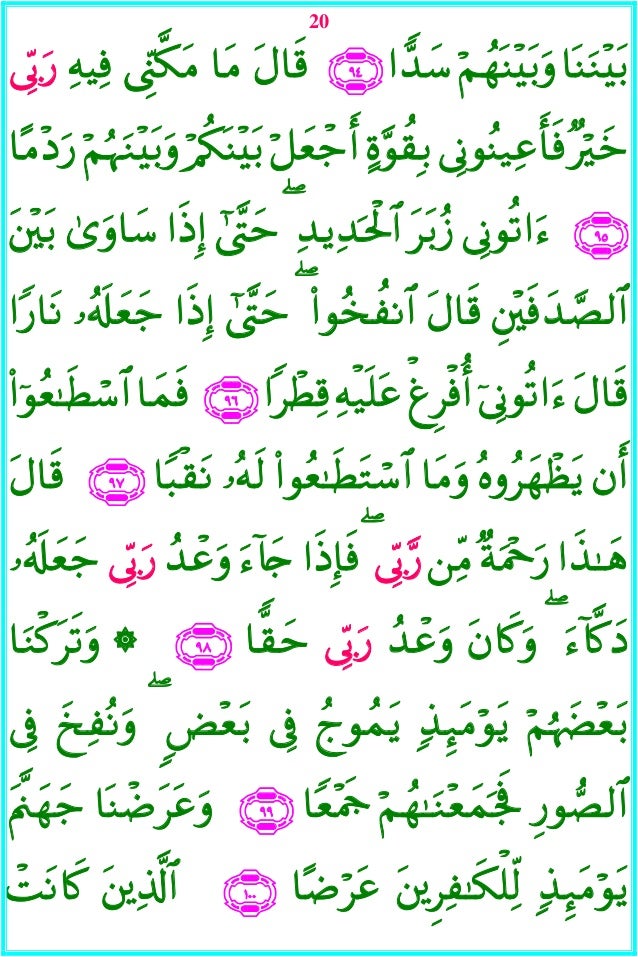 20
بَيْنَنَا وَبَيْنَهُمْ سَدًّا ٩٤ قَالَ مَا مَكَّنِّى فِيهِ رَبِّى
خَيْرٌ فَأَعِينُونِى بِقُوَّةٍ أَجْعَلْ بَيْنَكُمْ وَبَيْنَهُمْ رَدْمًا
٩٥ ءَاتُونِى زُبَرَ ٱلْحَدِيدِ ۖ حَتَّىٰٓ إِذَا سَاوَىٰ بَيْنَ
ٱلصَّدَفَيْنِ قَالَ ٱنفُخُوا۟ ۖ حَتَّىٰٓ إِذَا جَعَلَهُۥ نَارًا
قَالَ ءَاتُونِىٓ أُفْرِغْ عَلَيْهِ قِطْرًا ٩٦ فَمَا ٱسْطَـٰعُوٓا۟
أَن يَظْهَرُوهُ وَمَا ٱسْتَطَـٰعُوا۟ لَهُۥ نَقْبًا ٩٧ قَالَ
هَـٰذَا رَحْمَةٌ مِّن رَّبِّى ۖ فَإِذَا جَآءَ وَعْدُ رَبِّى جَعَلَهُۥ
دَكَّآءَ ۖ وَكَانَ وَعْدُ رَبِّى حَقًّا ٩٨ ۞ وَتَرَكْنَا
بَعْضَهُمْ يَوْمَئِذٍ يَمُوجُ فِى بَعْضٍ ۖ وَنُفِخَ فِى
ٱلصُّورِ فَجَمَعْنَـٰهُمْ جَمْعًا ٩٩ وَعَرَضْنَا جَهَنَّمَ
يَوْمَئِذٍ لِّلْكَـٰفِرِينَ عَرْضًا ١٠٠ ٱلَّذِينَ كَانَتْ